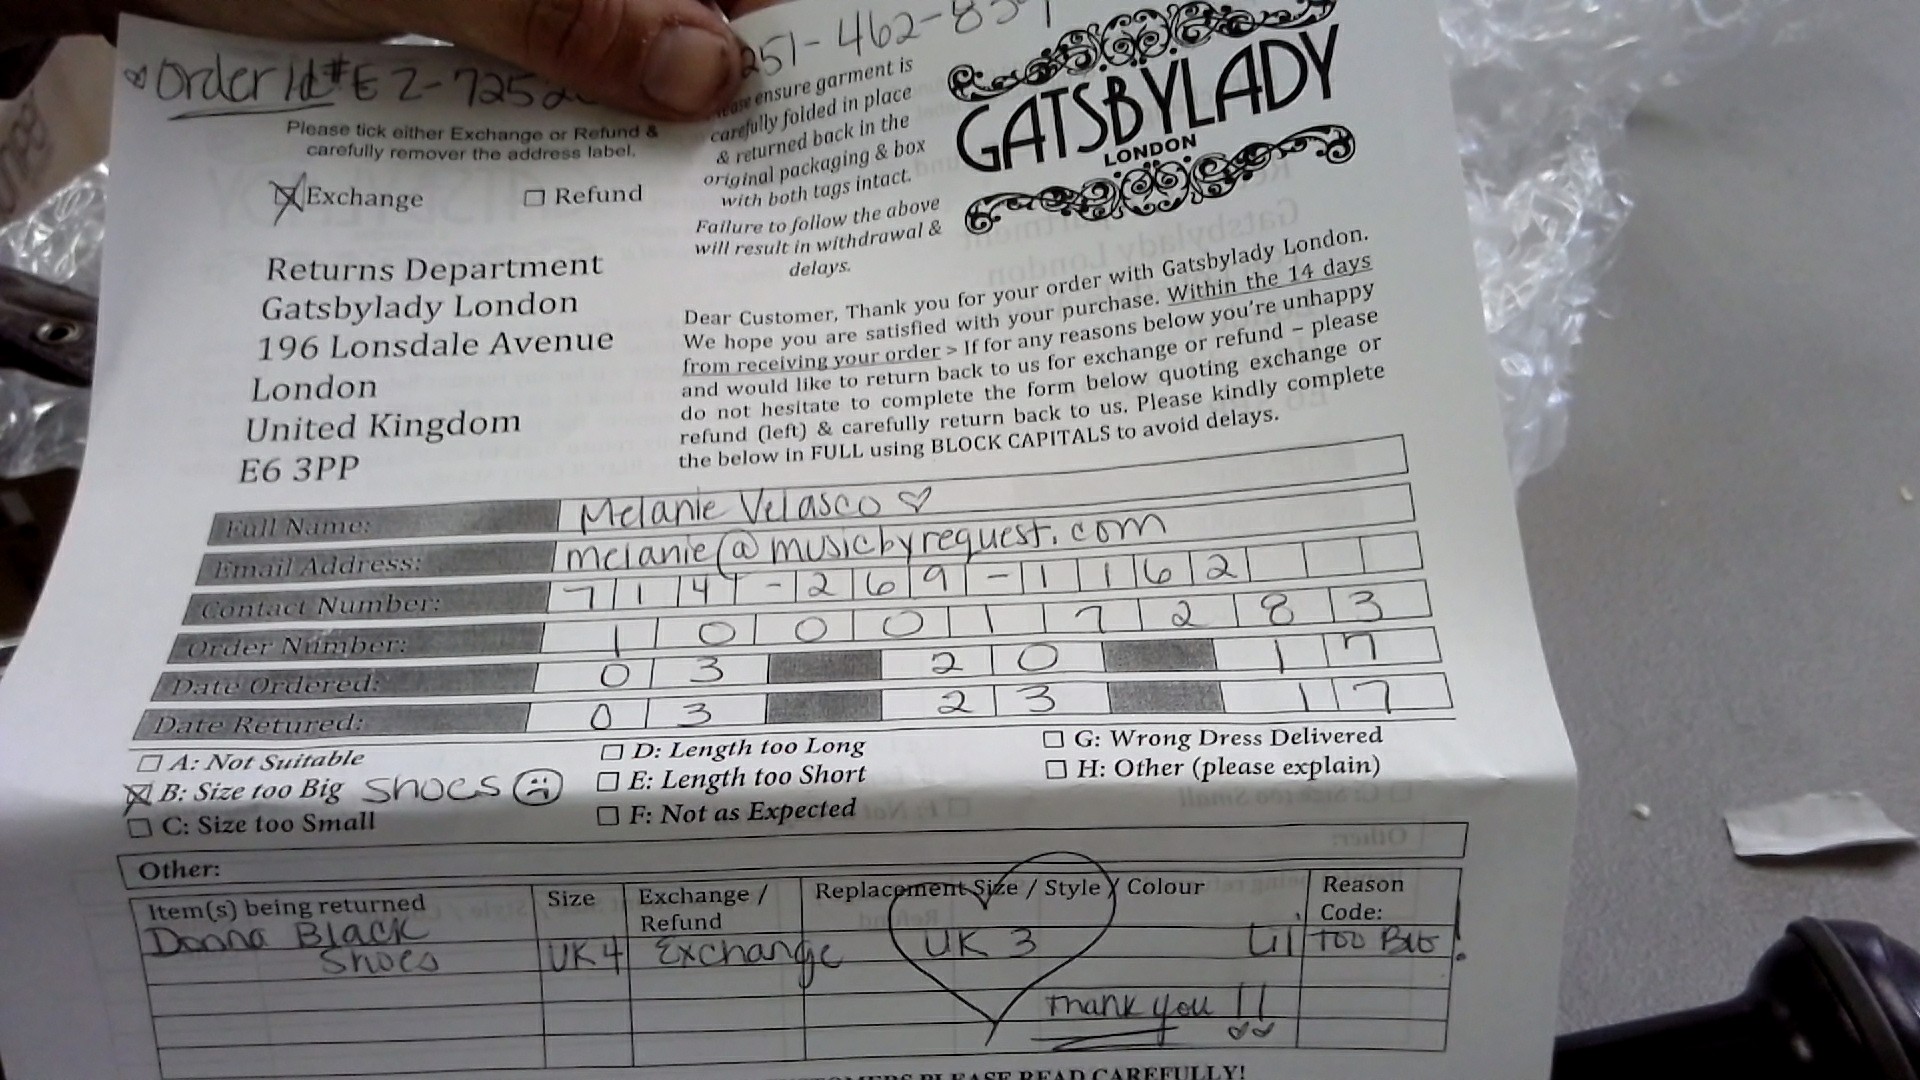 Order Id# EZ-7252
251-462-839
Please tick either Exchange or Refund &
carefully remover the address label.
Exchange
Refund
ensure garment is
carefully folded in place
& returned back in the
original packaging & box
with both tags intact.
Failure to follow the above
will result in withdrawal &
delays.
GATSBYLADY
LONDON
Returns Department
Gatsbylady London
196 Lonsdale Avenue
London
United Kingdom
E6 3PP
Dear Customer, Thank you for your order with Gatsbylady London.
We hope you are satisfied with your purchase. Within the 14 days
from receiving your order > If for any reasons below you're unhappy
and would like to return back to us for exchange or refund – please
do not hesitate to complete the form below quoting exchange or
refund (left) & carefully return back to us. Please kindly complete
the below in FULL using BLOCK CAPITALS to avoid delays.
Full Name: Melanie Velasco ♡
Email Address: melanie@musicbyrequest.com
Contact Number: 714-269-1162
Order Number: 100017283
Date Ordered: 03 20 17
Date Retured: 03 23 17
A: Not Suitable
B: Size too Big shoes ☹
C: Size too Small
D: Length too Long
E: Length too Short
F: Not as Expected
G: Wrong Dress Delivered
H: Other (please explain)
Other:
Item(s) being returned Size Exchange / Refund Replacement Size / Style / Colour Reason Code:
Donna Black
Shoes UK4 Exchange UK 3 Lil TOO BIG!
Thank you !!
PLEASE READ CAREFULLY!